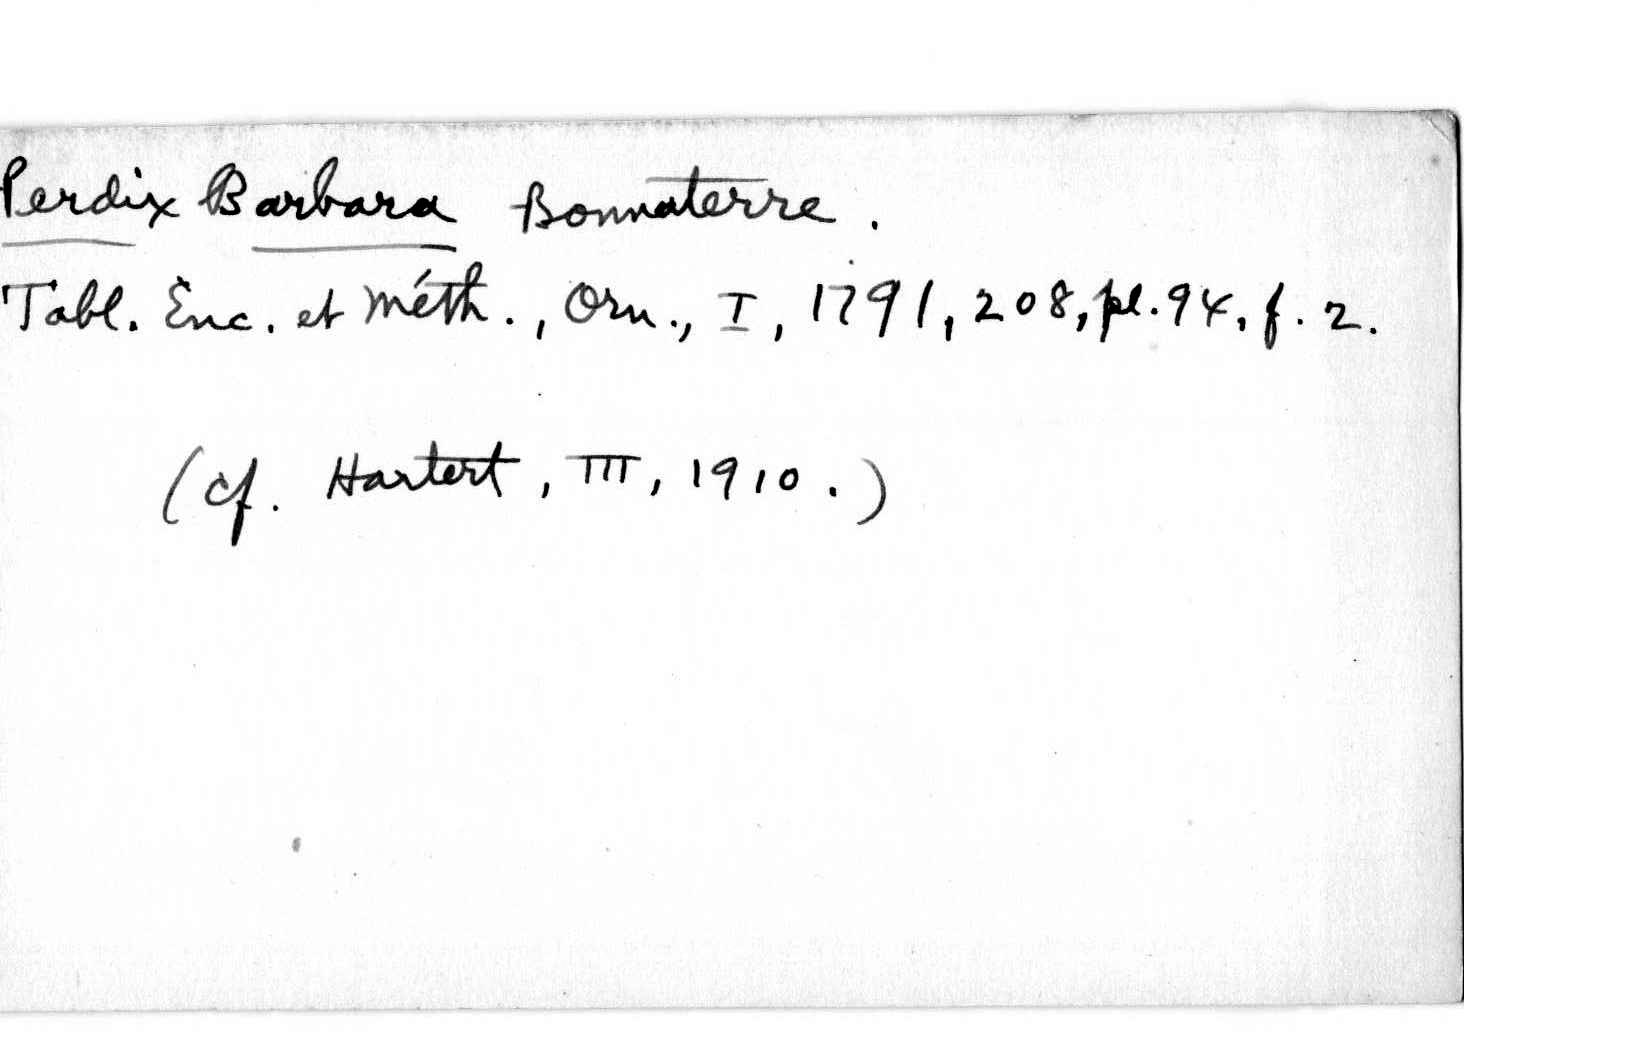 Perdix Barbara Bonnaterre.
Tabl. Enc. et Méth., Orn., I, 1791, 208, pl. 94, f. 2.
(cf. Hartert, III, 1910.)